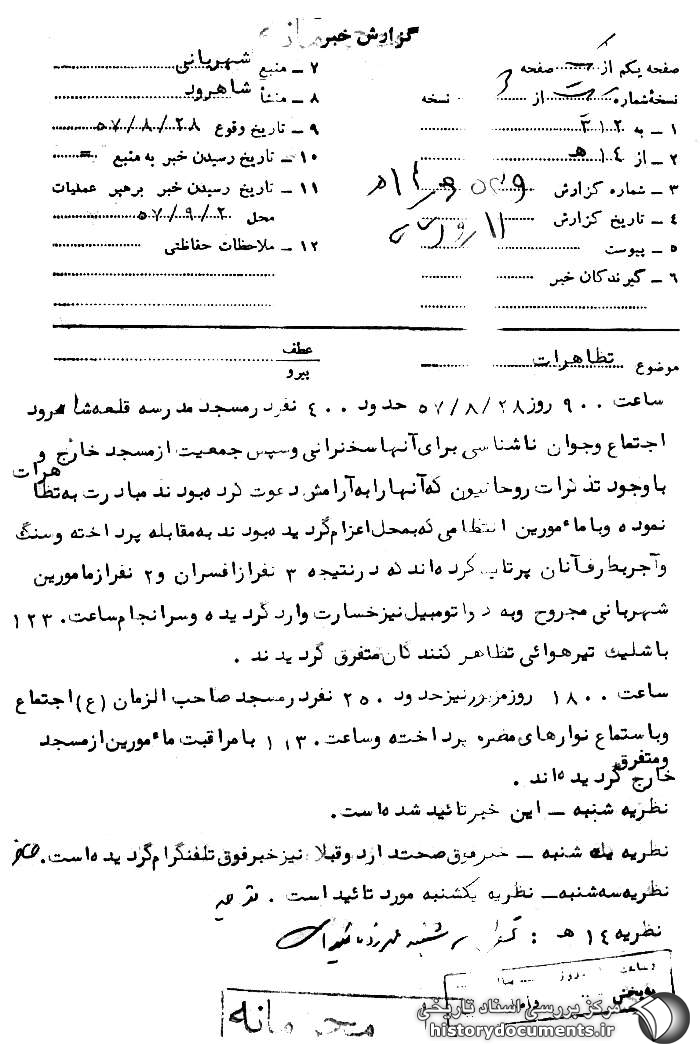 گزارش خبر
صفحه یکم از صفحه
نسخه‌شماره از نسخه
۱ ــ به ۳۱۲
۲ ــ از ۱۴ هـ
۳ ــ شماره گزارش
۴ ــ تاریخ گزارش
۵ ــ پیوست
۶ ــ گیرندگان خبر
۷ ــ منبع شهربانی
۸ ــ منشأ شاهرود
۹ ــ تاریخ وقوع ۵۷/۸/۲۸
۱۰ ــ تاریخ رسیدن خبر به منبع =
۱۱ ــ تاریخ رسیدن خبر برهبر عملیات
محل ۵۷/۹/۲
۱۲ ــ ملاحظات حفاظتی
موضوع تظاهرات
عطف
پیرو
ساعت ۹۰۰ روز ۵۷/۸/۲۸ حدود ۴۰۰ نفر در مسجد مدرسه قلعه شاهرود
اجتماع وجوان ناشناسی برای آنها سخنرانی وسپس جمعیت از مسجد خارج و
با وجود تذکرات روحانیون که آنها را به آرامش دعوت کرده بودند مبادرت به تظاهرات
نموده وبا مأمورین انتظامی که بمحل اعزام گردیده بودند به مقابله پرداخته وسنگ
وآجر بطرف آنان پرتاب کرده‌اند که در نتیجه ۳ نفر از افسران و ۲ نفر از مامورین
شهربانی مجروح وبه دو اتومبیل نیز خسارت وارد گردیده وسرانجام ساعت ۱۲۳۰
با شلیک تیر هوائی تظاهر کنندگان متفرق گردیدند .
ساعت ۱۸۰۰ روز مزبور نیز حدود ۲۵۰ نفر در مسجد صاحب الزمان (ع) اجتماع
وباستماع نوارهای مضره پرداخته وساعت ۱۱۳۰ با مراقبت مأمورین از مسجد
خارج ومتفرق گردیده‌اند .
نظریه شنبه ــ این خبر تائید شده است.
نظریه یک شنبه ــ خبر فوق صحت دارد وقبلا نیز خبر فوق تلفنگرام گردیده است.
نظریه سه شنبه ــ نظریه یکشنبه مورد تائید است .
نظریه ۱۴ هـ :
محرمانه
مرکز بررسی اسناد تاریخی
historydocuments.ir